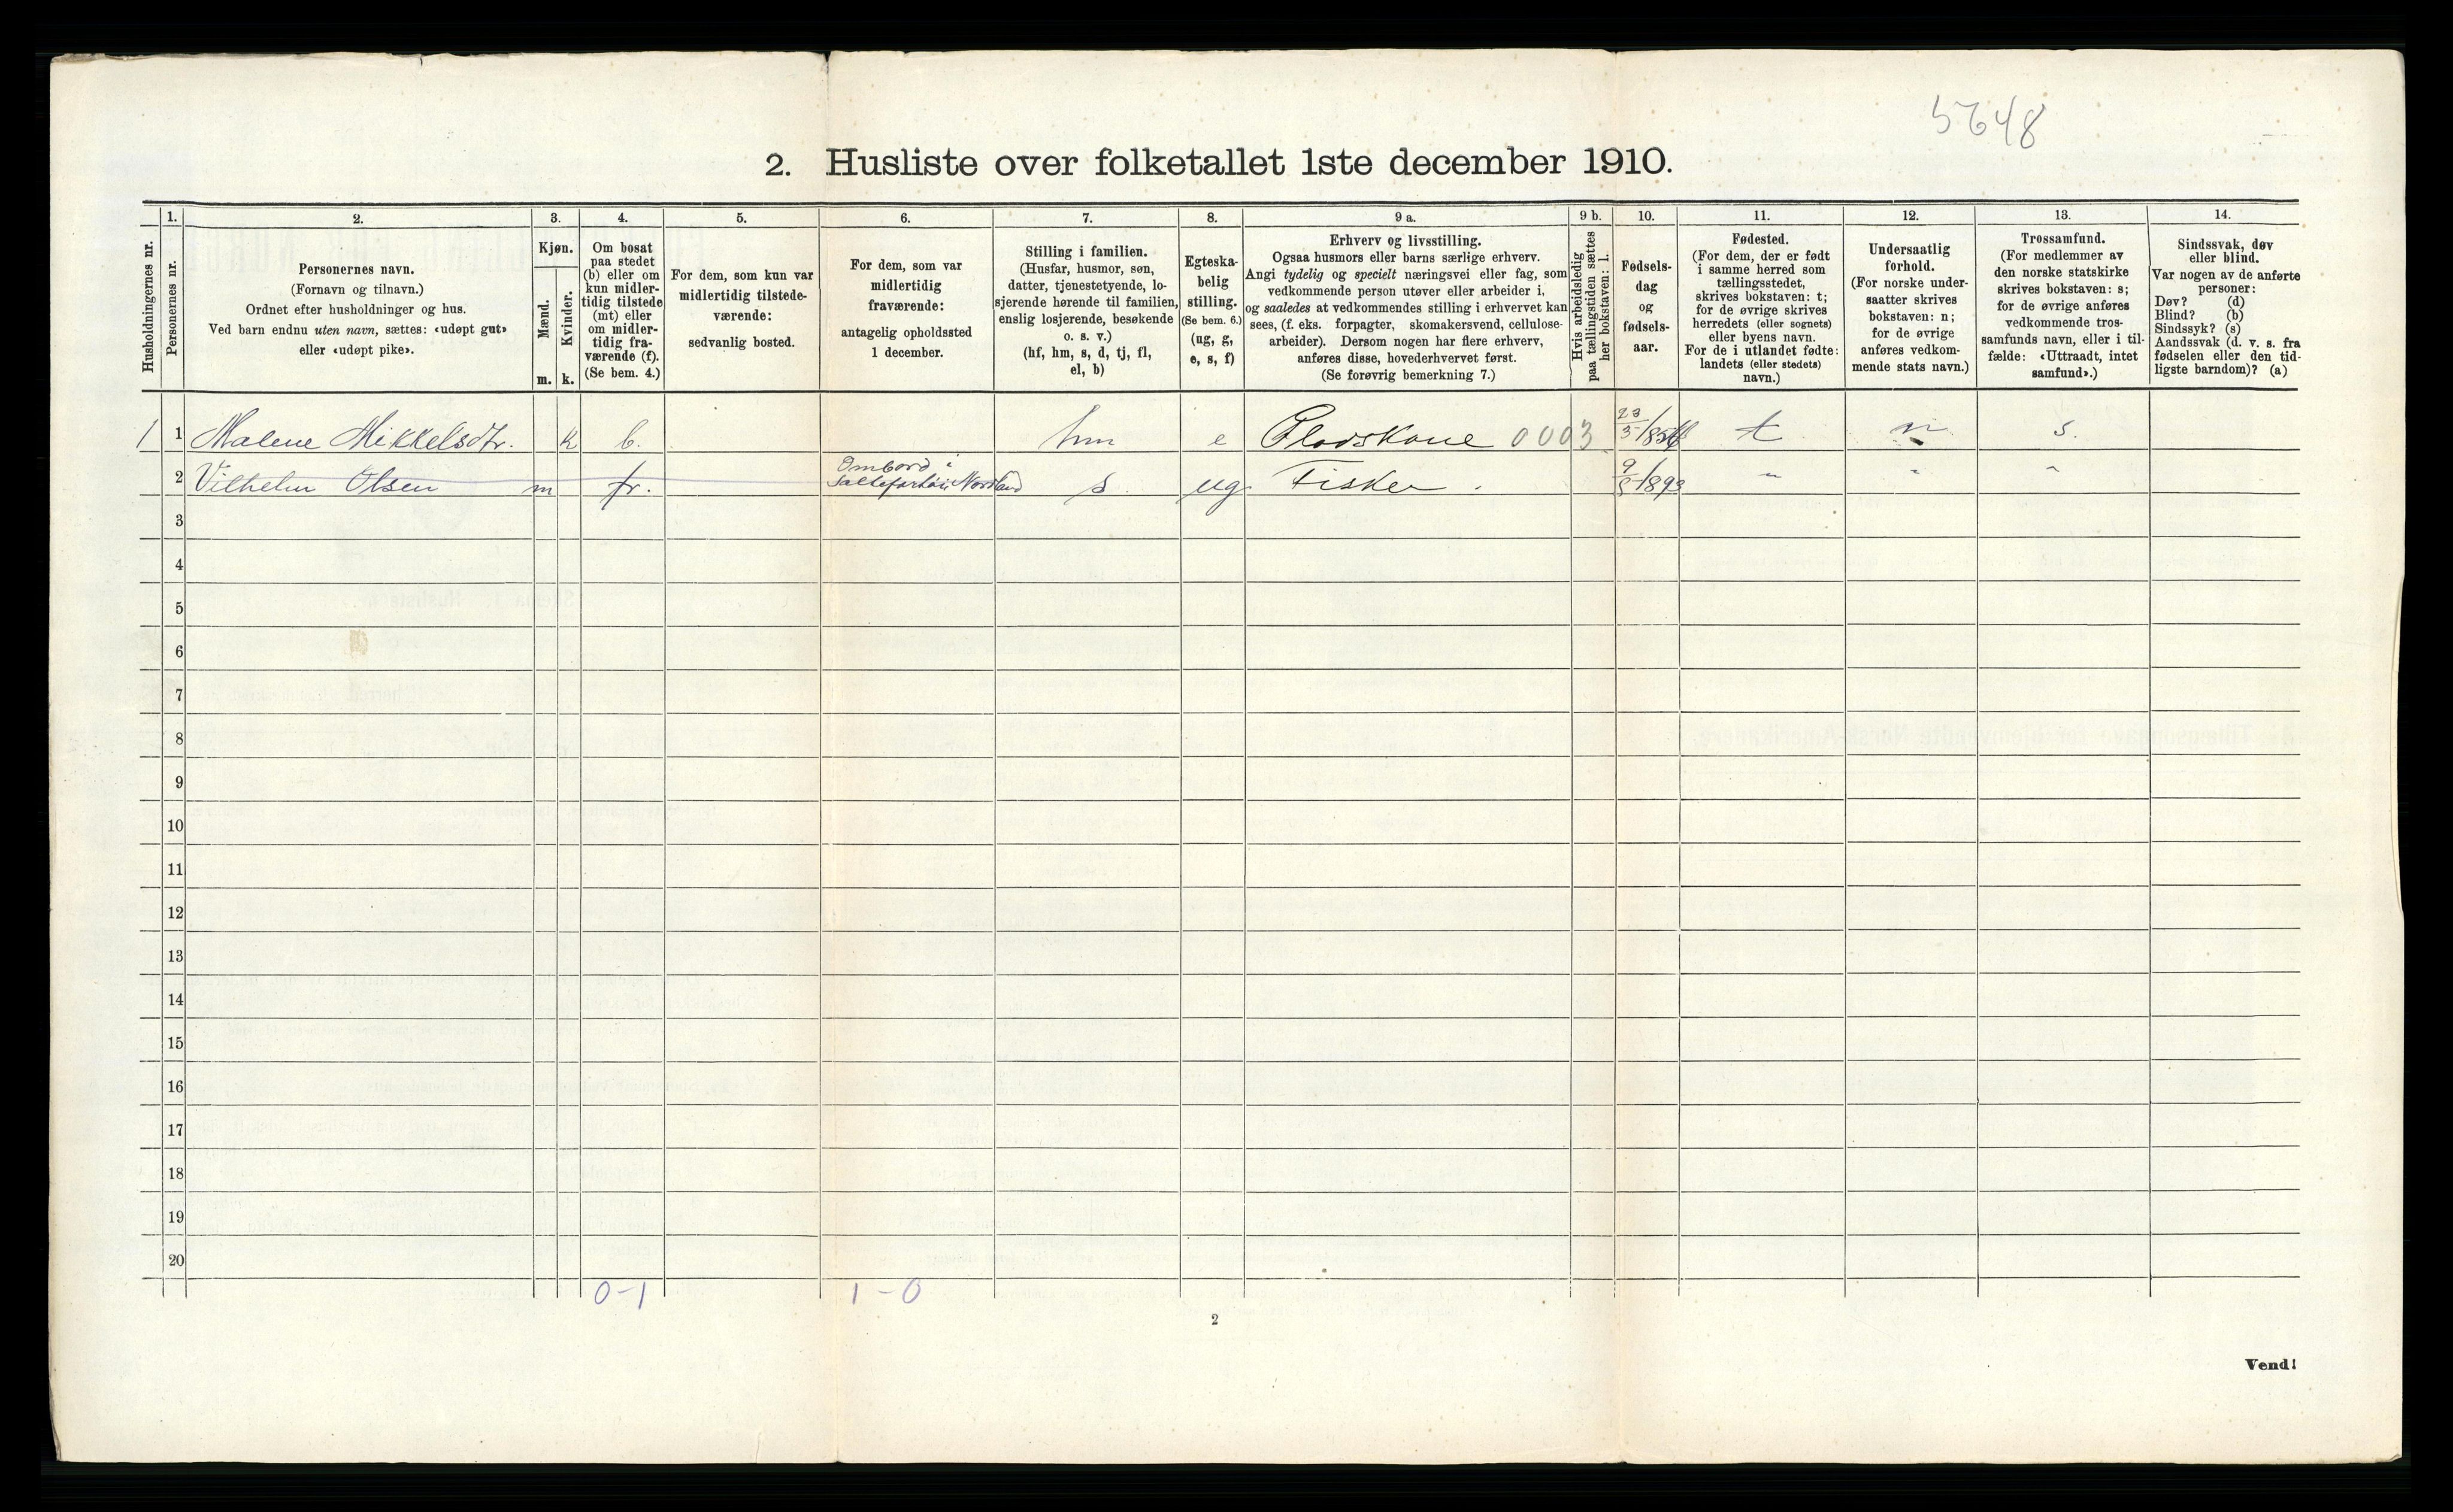 5648
2. Husliste over folketallet 1ste december 1910.
Husholdningernes nr.
1.
Personernes nr.
2.
Personernes navn.
(Fornavn og tilnavn.)
Ordnet efter husholdninger og hus.
Ved barn endnu uten navn, sættes: «udøpt gut»
eller «udøpt pike».
3.
Kjøn.
Mænd.
Kvinder.
m.
k.
4.
Om bosat
paa stedet
(b) eller om
kun midler-
tidig tilstede
(mt) eller
om midler-
tidig fra-
værende (f).
(Se bem. 4.)
5.
For dem, som kun var
midlertidig tilstede-
værende:
sedvanlig bosted.
6.
For dem, som var
midlertidig
fraværende:
antagelig opholdssted
1 december.
7.
Stilling i familien.
(Husfar, husmor, søn,
datter, tjenestetyende, lo-
sjerende hørende til familien,
enslig losjerende, besøkende
o. s. v.)
(hf, hm, s, d, tj, fl,
el, b)
8.
Egteska-
belig
stilling.
(Se bem. 6.)
(ug, g,
e, s, f)
9 a.
Erhverv og livsstilling.
Ogsaa husmors eller barns særlige erhverv.
Angi tydelig og specielt næringsvei eller fag, som
vedkommende person utøver eller arbeider i,
og saaledes at vedkommendes stilling i erhvervet kan
sees, (f. eks. forpagter, skomakersvend, cellulose-
arbeider). Dersom nogen har flere erhverv,
anføres disse, hovederhvervet først.
(Se forøvrig bemerkning 7.)
9 b.
Hvis arbeidsledig
paa tællingstiden sættes
her bokstaven: l.
10.
Fødsels-
dag
og
fødsels-
aar.
11.
Fødested.
(For dem, der er født
i samme herred som
tællingsstedet,
skrives bokstaven: t;
for de øvrige skrives
herredets (eller sognets)
eller byens navn.
For de i utlandet fødte:
landets (eller stedets)
navn.)
12.
Undersaatlig
forhold.
(For norske under-
saatter skrives
bokstaven: n;
for de øvrige
anføres vedkom-
mende stats navn.)
13.
Trossamfund.
(For medlemmer av
den norske statskirke
skrives bokstaven: s;
for de øvrige anføres
vedkommende tros-
samfunds navn, eller i til-
fælde: «Uttraadt, intet
samfund».)
14.
Sindssvak, døv
eller blind.
Var nogen av de anførte
personer:
Døv? (d)
Blind? (b)
Sindssyk? (s)
Aandssvak (d. v. s. fra
fødselen eller den tid-
ligste barndom)? (a)
1 1 Malene Mikkelsdtr. k b. hm e 0003 23/3 t n s.
2 Vilhelm Olsen m fr. Ombord i Nordland s ug Fisker. 1893 " " "
3
4
5
6
7
8
9
10
11
12
13
14
15
16
17
18
19
20
0-1 1-0
2
Vend!